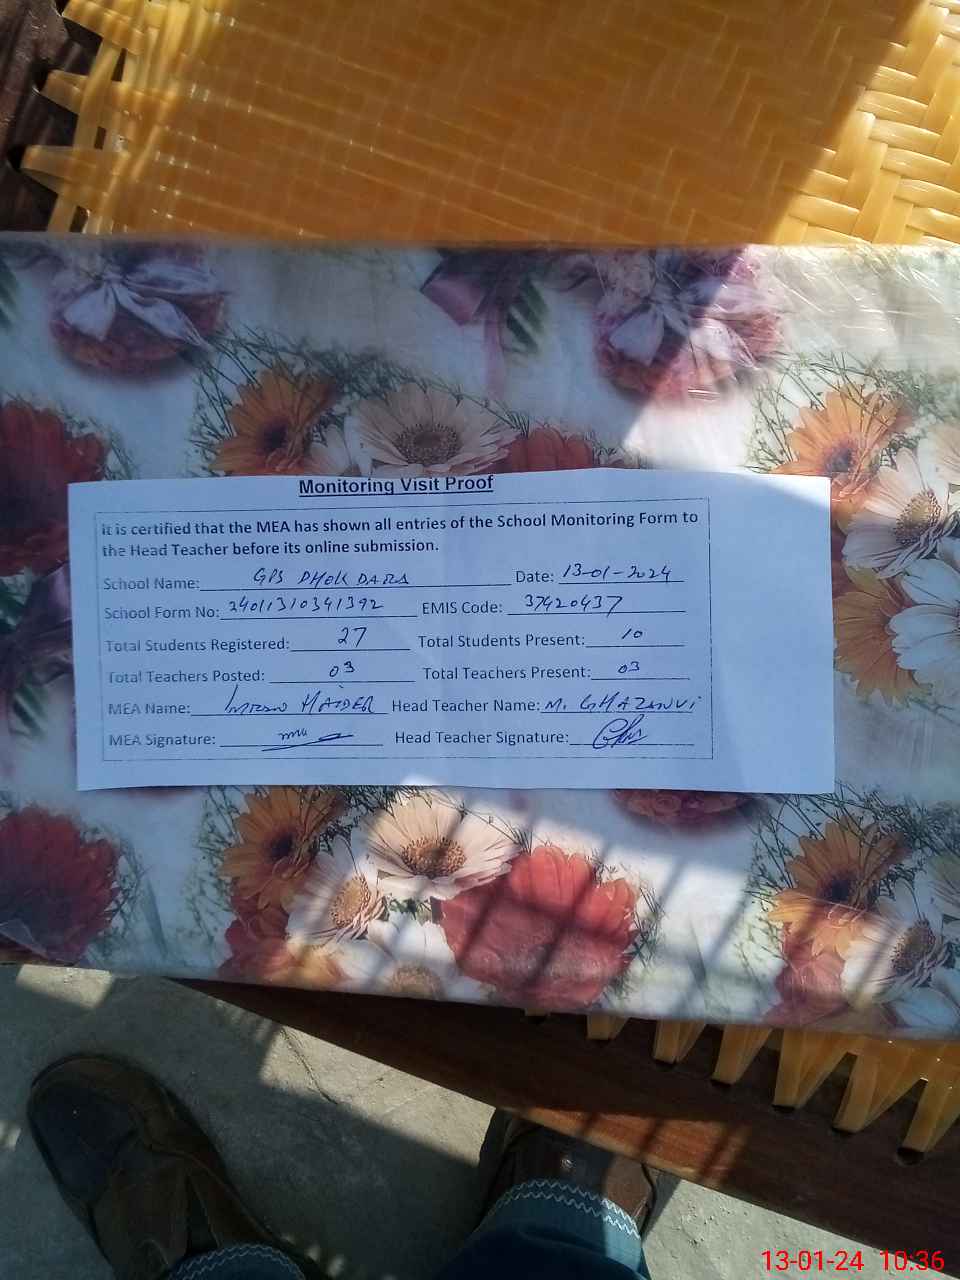 Monitoring Visit Proof
It is certified that the MEA has shown all entries of the School Monitoring Form to
the Head Teacher before its online submission.
School Name: GPS DHOK DARA Date: 13-01-2024
School Form No: 24011310341392 EMIS Code: 37420437
Total Students Registered: 27 Total Students Present: 10
Total Teachers Posted: 03 Total Teachers Present: 03
MEA Name: HAIDER Head Teacher Name: M. GHAZANVi
MEA Signature: Head Teacher Signature:
13-01-24 10:36